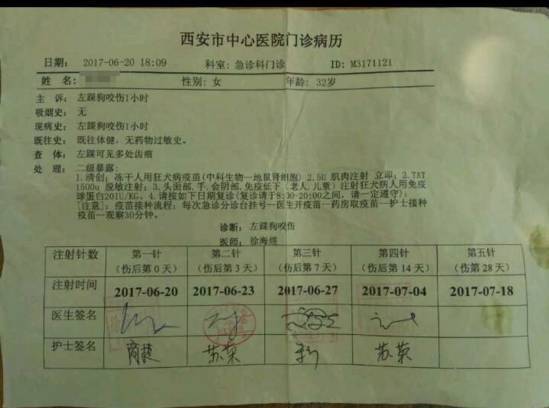 西安市中心医院门诊病历
日期: 2017-06-20 18:09 科室: 急诊科门诊 ID: M3171121
姓名: 性别: 女 年龄: 32岁
主 诉: 左踝狗咬伤1小时
吸烟史: 无
现病史: 左踝狗咬伤1小时
既往史: 既往体健, 无药物过敏史。
查 体: 左踝可见多处齿痕
处 理: 二级暴露:
1.清创; 冻干人用狂犬病疫苗(中科生物—地鼠肾细胞) 2.5U 肌肉注射 立即; 2.TAT
1500u 脱敏注射; 3.头面部,手,会阴部,免疫低下(老人,儿童)注射狂犬病人用免疫
球蛋白20IU/KG。4.请按如下日期复诊(复诊请于8:30-20:00之间, 请一定遵守)
[注意]: 疫苗接种流程: 每次急诊分诊台挂号—医生开疫苗—药房取疫苗—护士接种
疫苗—观察30分钟。
诊断: 左踝狗咬伤
医师: 徐海
注射针数 第一针 第二针 第三针 第四针 第五针
(伤后第 0 天) (伤后第 3 天) (伤后第 7 天) (伤后第 14 天) (伤后第 28 天)
注射时间 2017-06-20 2017-06-23 2017-06-27 2017-07-04 2017-07-18
医生签名
护士签名 苏荣 苏荣